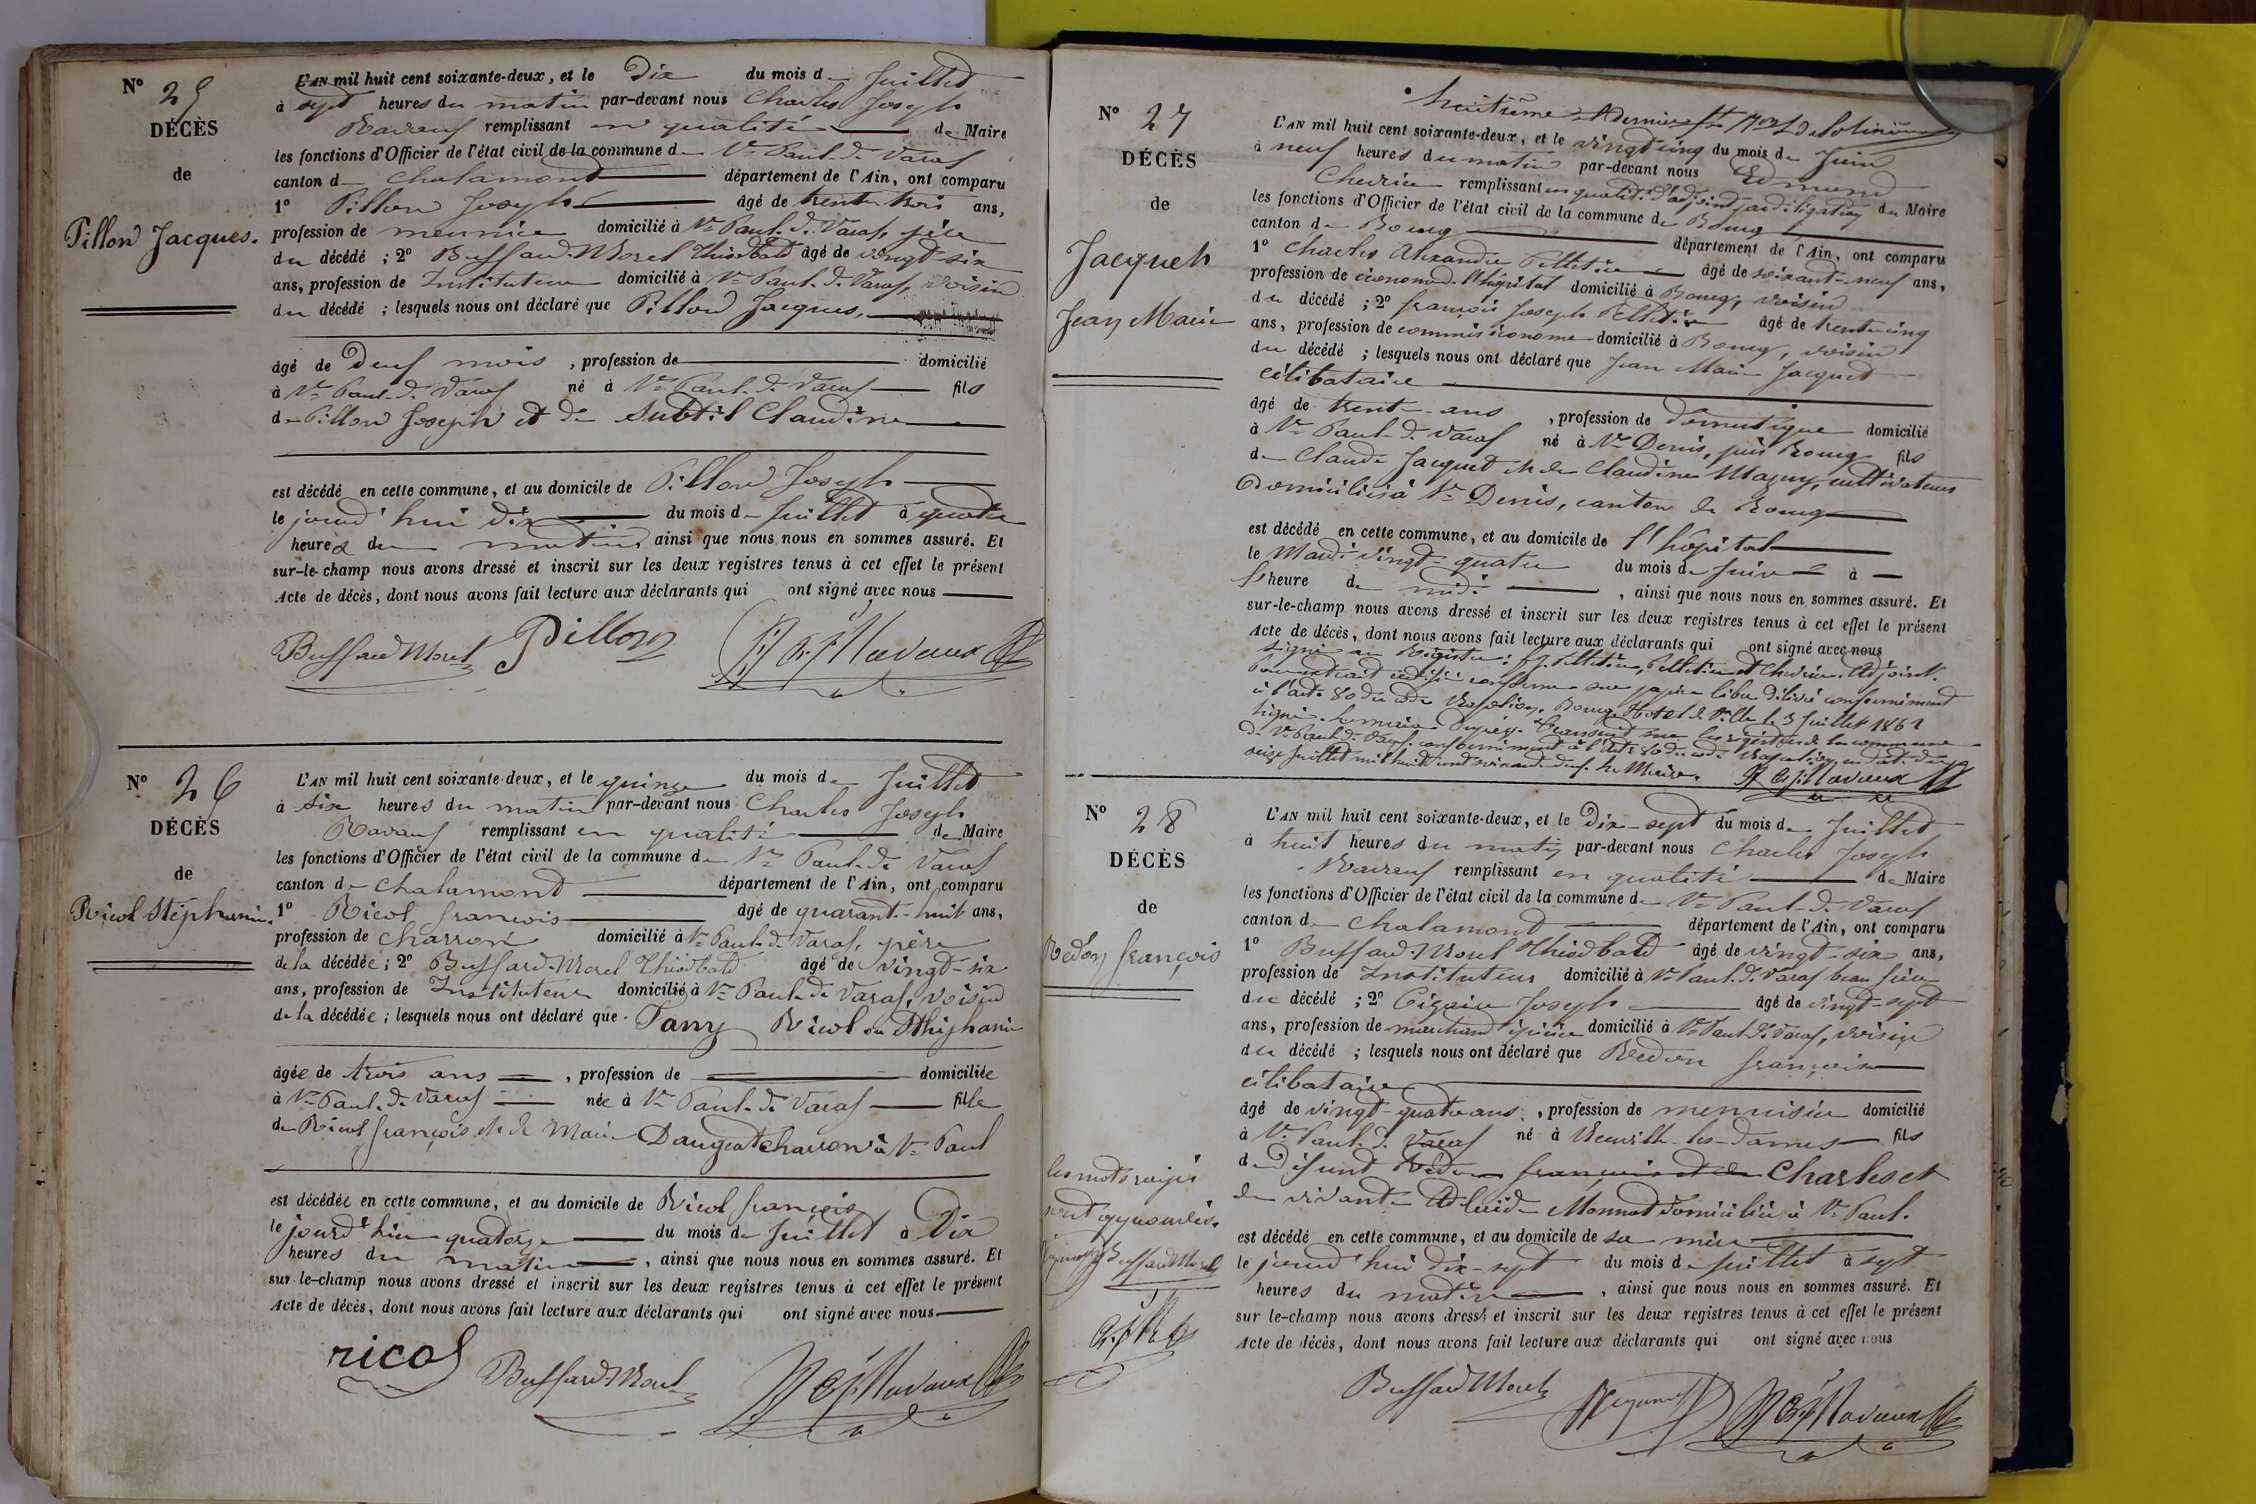 N° 25
DÉCÈS
de
Pillon Jacques.
L'AN mil huit cent soixante-deux, et le Dix du mois de Juillet
à sept heures du matin par-devant nous Charles Joseph
Ravaux remplissant en qualité de Maire
les fonctions d'Officier de l'état civil de la commune de St Paul-de-Varax
canton de Chalamont département de l'Ain, ont comparu
1° Pillon Joseph âgé de trente trois ans,
profession de meunier domicilié à St Paul-de-Varax, père
du décédé ; 2° Buffard-Morel Théodbald âgé de vingt-six
ans, profession de Instituteur domicilié à St Paul-de-Varax, voisin
du décédé ; lesquels nous ont déclaré que Pillon Jacques,
âgé de Deux mois , profession de domicilié
à St Paul-de-Varax né à St Paul-de-Varax fils
de Pillon Joseph et de Subtil Claudine
est décédé en cette commune, et au domicile de Pillon Joseph
le jourd'hui Dix du mois de Juillet à quatre
heures du matin, ainsi que nous nous en sommes assuré. Et
sur-le-champ nous avons dressé et inscrit sur les deux registres tenus à cet effet le présent
Acte de décès, dont nous avons fait lecture aux déclarants qui ont signé avec nous
Buffard Morel Pillon Ravaux
N° 26
DÉCÈS
de
Ricol Stéphanie.
L'AN mil huit cent soixante-deux, et le quinze du mois de Juillet
à six heures du matin par-devant nous Charles Joseph
Ravaux remplissant en qualité de Maire
les fonctions d'Officier de l'état civil de la commune de St Paul-de-Varax
canton de Chalamont département de l'Ain, ont comparu
1° Ricol françois âgé de quarante-huit ans,
profession de charron domicilié à St Paul-de-Varax, père
de la décédée ; 2° Buffard-Morel Théodbald âgé de vingt-six
ans, profession de Instituteur domicilié à St Paul-de-Varax, voisin
de la décédée ; lesquels nous ont déclaré que Fany Ricol ou Sthéphanie
âgée de trois ans , profession de domiciliée
à St Paul-de-Varax née à St Paul-de-Varax fille
de Ricol françois et de Marie Daugeat charron à St Paul
est décédée en cette commune, et au domicile de Ricol françois
le jourd'hui quatorze du mois de Juillet à Dix
heures du matin , ainsi que nous nous en sommes assuré. Et
sur le-champ nous avons dressé et inscrit sur les deux registres tenus à cet effet le présent
Acte de décès, dont nous avons fait lecture aux déclarants qui ont signé avec nous
ricol Buffard Morel Ravaux
huitième et dernier
N° 27
DÉCÈS
de
Jacquet
Jean Marie
L'AN mil huit cent soixante-deux, et le vingt cinq du mois de Juin
à neuf heures du matin par-devant nous Edmond
Chevrier remplissant en qualité d'adjoint par délégation du Maire
les fonctions d'Officier de l'état civil de la commune de Bourg
canton de Bourg département de l'Ain, ont comparu
1° Charles Alexandre Pelletier âgé de soixante-neuf ans,
profession de économe de l'hôpital domicilié à Bourg, voisin
du décédé ; 2° françois Joseph Pelletier âgé de trente cinq
ans, profession de commis économe domicilié à Bourg, voisin
du décédé ; lesquels nous ont déclaré que Jean Marie Jacquet
célibataire
âgé de trente ans , profession de domestique domicilié
à St Paul-de-Varax né à St Denis, près Bourg fils
de Claude Jacquet et de Claudine Mazuy, cultivateurs
domiciliés à St Denis, canton de Bourg
est décédé en cette commune, et au domicile de l'hôpital
le Mardi vingt-quatre du mois de Juin à
l'heure de midi , ainsi que nous nous en sommes assuré. Et
sur-le-champ nous avons dressé et inscrit sur les deux registres tenus à cet effet le présent
Acte de décès, dont nous avons fait lecture aux déclarants qui ont signé avec nous
signé au Registre : f. J. Pelletier, Pelletier et Chevrier Adjoint.
Pour extrait certifié conforme sur papier libre délivré conformément
à l'art. 80 du code Napoléon. Bourg Hotel de Ville le 3 Juillet 1862
signé le maire Transcrit sur les registres de la commune
de St Paul-de-Varax, conformément à l'Art. 80 du code Napoléon en date du
seize Juillet mil huit cent soixante-deux. Le Maire. Ravaux
N° 28
DÉCÈS
de
Redon françois
L'AN mil huit cent soixante-deux, et le Dix-sept du mois de Juillet
à huit heures du matin par-devant nous Charles Joseph
Ravaux remplissant en qualité de Maire
les fonctions d'Officier de l'état civil de la commune de St Paul-de-Varax
canton de Chalamont département de l'Ain, ont comparu
1° Buffard-Morel Théodbald âgé de vingt-six ans,
profession de Instituteur domicilié à St Paul-de-Varax beau frère
du décédé ; 2° Joseph âgé de vingt-sept
ans, profession de marchand épicier domicilié à St Paul-de-Varax, voisin
du décédé ; lesquels nous ont déclaré que Redon françois
célibataire
âgé de vingt-quatre ans , profession de menuisier domicilié
à St Paul-de-Varax né à Neuville-les-Dames fils
de défunt Redon françois et de Charles et
de vivante Adélaïde Monnot domiciliée à St Paul.
est décédé en cette commune, et au domicile de sa mère
le jourd'hui dix-sept du mois de Juillet à sept
heures du matin , ainsi que nous nous en sommes assuré. Et
sur le-champ nous avons dressé et inscrit sur les deux registres tenus à cet effet le présent
Acte de décès, dont nous avons fait lecture aux déclarants qui ont signé avec nous
les mots rayés
sont approuvés.
Buffard Morel
Buffard Morel Ravaux